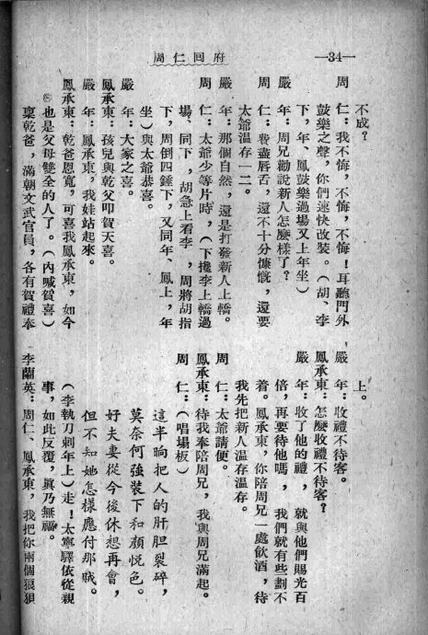 周仁回府
—34—
不成？
周　仁：我不悔，不悔，不悔！耳聽門外
鼓樂之聲，你們速快改裝。（胡、李
下，年、鳳鼓樂過場又上年坐）
嚴　年：周兄勸說新人怎麼樣了？
周　仁：費盡唇舌，還不十分慷慨，還要
太爺溫存一二。
嚴　年：那個自然，還是打發新人上轎。
周　仁：太爺少等片時，（下攙李上轎過
場，同下，胡急上看李，周將胡指
下，周倒四錘下，又同年、鳳上，年
坐）與太爺恭喜。
嚴　年：大家之喜。
鳳承東：孩兒與乾父叩賀天喜。
嚴　年：鳳承東，我娃站起來。
鳳承東：乾爸恩寬，可喜我鳳承東　如今
也是父母雙全的人了。（內喊賀喜）
稟乾爸，滿朝文武官員，各有賀禮奉
上。
嚴　年：收禮不待客。
鳳承東：怎麼收禮不待客？
嚴　年：收了他的禮，就與他們賜光百
倍，再要待他嗎，我們就有些劃不
着。鳳承東，你陪周兄一處飲酒，待
我先把新人溫存溫存。
周　仁：太爺請便。
鳳承東：待我奉陪周兄，我與周兄滿起。
周　仁：（唱塲板）
這半晌把人的肝胆裂碎，
莫奈何強裝下和顏悅色。
好夫妻從今後休想再會，
但不知她怎樣應付那賊。
（李執刀刺年上）走！太寧驛依從親
事，如此反覆，眞乃無福。
李蘭英：周仁、鳳承東，我把你兩個狼狽